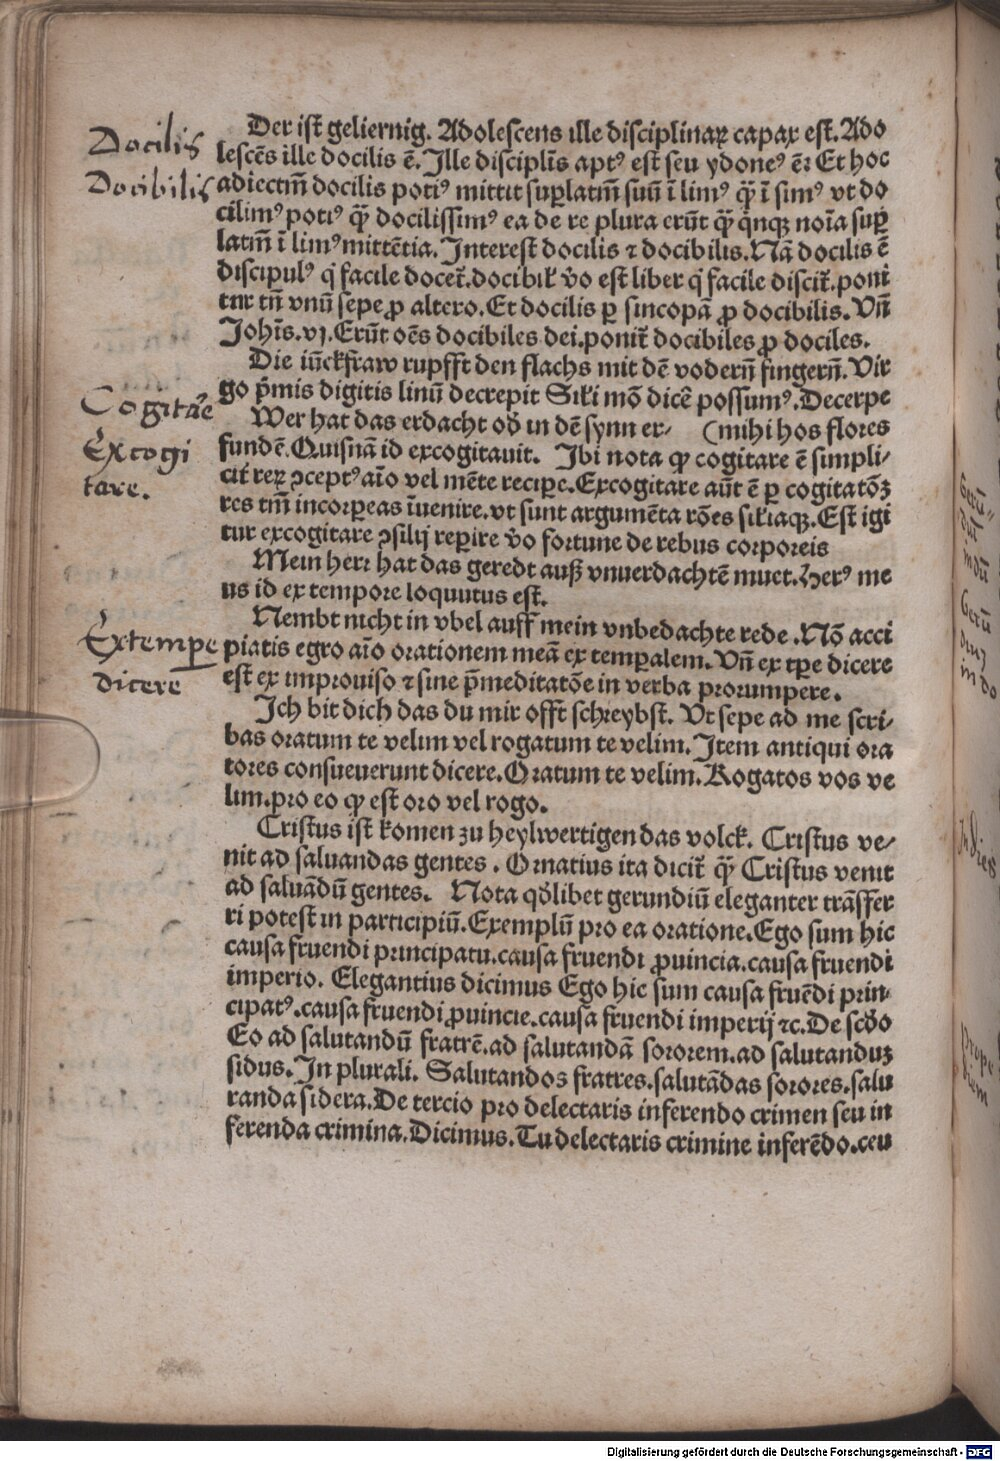 Docilis
Docibilis
Der ist geliernig. Adolescens ille disciplinaꝝ capax est. Ado
lescẽs ille docilis ẽ. Ille disciplĩs aptꝰ est seu ydoneꝰ ẽ: Et hoc
adiectm̃ docilis potiꝰ mittit suꝑlatm̃ suũ ĩ limꝰ q̃ꝫ ĩ simꝰ vt do
cilimꝰ potiꝰ q̃ꝫ docilissimꝰ ea de re plura erũt q̃ꝫ qͥnqꝫ noĩa suꝑ
latm̃ ĩ limꝰ mittẽtia. Interest docilis ⁊ docibilis. Nã docilis ẽ
discipulꝰ qͥ facile docet̃. docibil̃ v̾o est liber qͥ facile discit̃. poni
tur tñ vnũ sepe ꝓ altero. Et docilis ꝑ sincopã ꝓ docibilis. Vñ
Johĩs. vj. Erũt oẽs docibiles dei. ponit̃ docibiles ꝓ dociles.
Die iũckfraw rupfft den flachs mit dẽ vodern̄ fingern̄. Vir
go p̃mis digitis linũ decrepit Sil̃i mõ dicẽ possumꝰ. Decerpe
Cogitãe
Wer hat das erdacht od̾ in dẽ synn er⸗ (mihi hos flores
Excogi
tare.
fundẽ. Quisnã id excogitauit. Ibi nota qꝫ cogitare ẽ simpli⸗
cit̾ reꝝ ↄceptꝰ aĩo vel mẽte recipe. Excogitare aũt ẽ ꝑ cogitatõꝫ
res tm̃ incorꝑeas ĩuenire. vt sunt argumẽta rões sil̃iaqꝫ. Est igi
tur excogitare ↄsilij reꝑire v̾o fortune de rebus corporeis
Mein herr hat das geredt auß vnuerdachtẽ muet. Herꝰ me
us id ex tempore loquutus est.
Extempe
dicere
Nembt nicht in vbel auff mein vnbedachte rede. Nõ acci
piatis egro aĩo orationem meã ex temꝑalem. Vñ ex tꝑe dicere
est ex improuiso ⁊ sine p̃meditatõe in verba prorumpere.
Ich bit dich das du mir offt schreybst. Vt sepe ad me scri⸗
bas oratum te velim vel rogatum te velim. Item antiqui ora
tores consueuerunt dicere. Oratum te velim. Rogatos vos ve
lim. pro eo qꝫ est oro vel rogo.
Cristus ist komen zu heylwertigen das volck. Cristus ve⸗
nit ad saluandas gentes. Ornatius ita dicit̃ q̃ꝫ Cristus venit
ad saluãdũ gentes. Nota qd̾libet gerundiũ eleganter trãsfer
ri potest in participiũ. Exemplũ pro ea oratione. Ego sum hic
causa fruendi principatu. causa fruendi ꝓuincia. causa fruendi
imperio. Elegantius dicimus Ego hic sum causa fruẽdi prin⸗
cipatꝰ. causa fruendi ꝓuincie. causa fruendi imperij ⁊c. De scd̾o
Eo ad salutandũ fratrẽ. ad salutandã sororem. ad salutanduꝫ
sidus. In plurali. Salutandos fratres. salutãdas sorores. salu
randa sidera. De tercio pro delectaris inferendo crimen seu in
ferenda crimina. Dicimus. Tu delectaris crimine inferẽdo. ceu
Gerũ
dũ
in dũ
Gerũ
in do
In dies
prope
diem
Digitalisierung gefördert durch die Deutsche Forschungsgemeinschaft - DFG